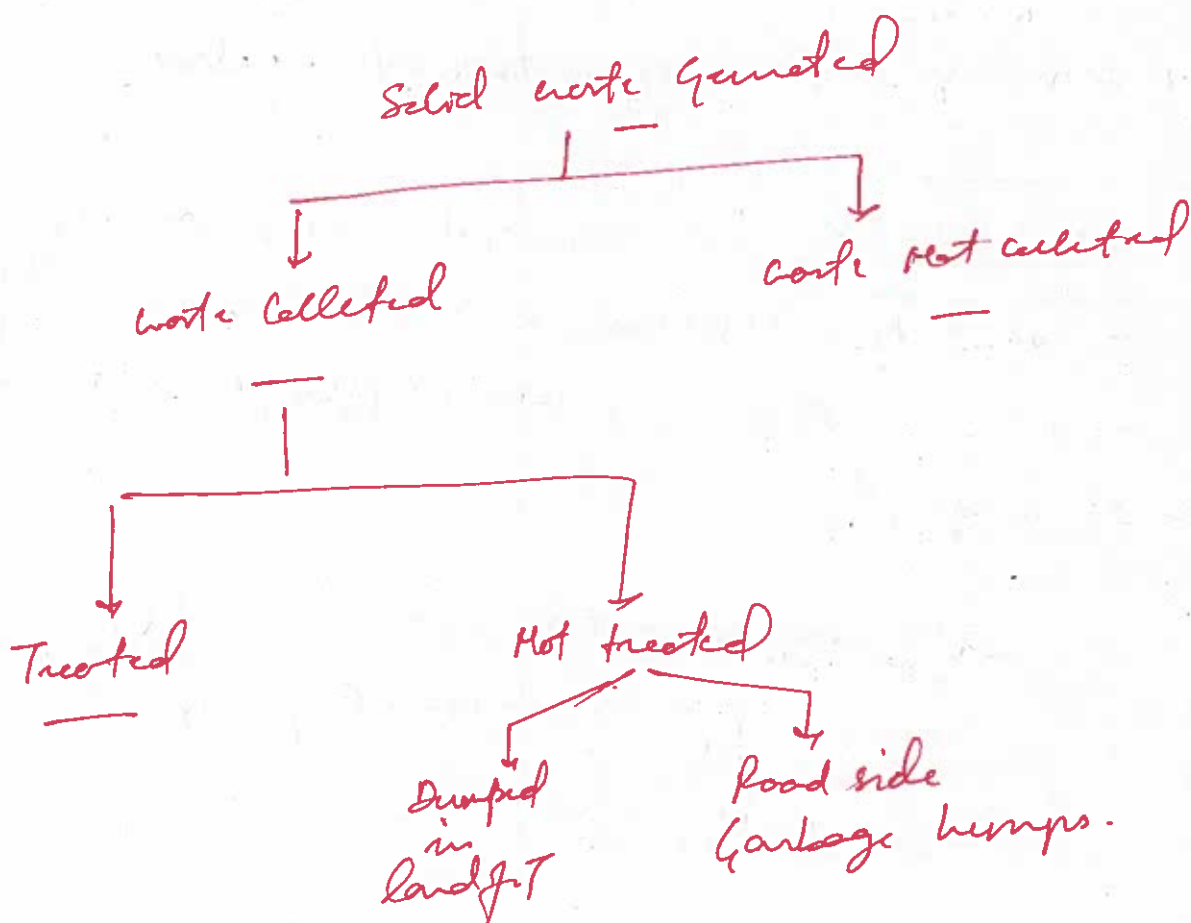 Solid waste Generated
waste Collected
waste Not collected
Treated
Not treated
Dumped
in
landfill
Road side
Garbage humps.